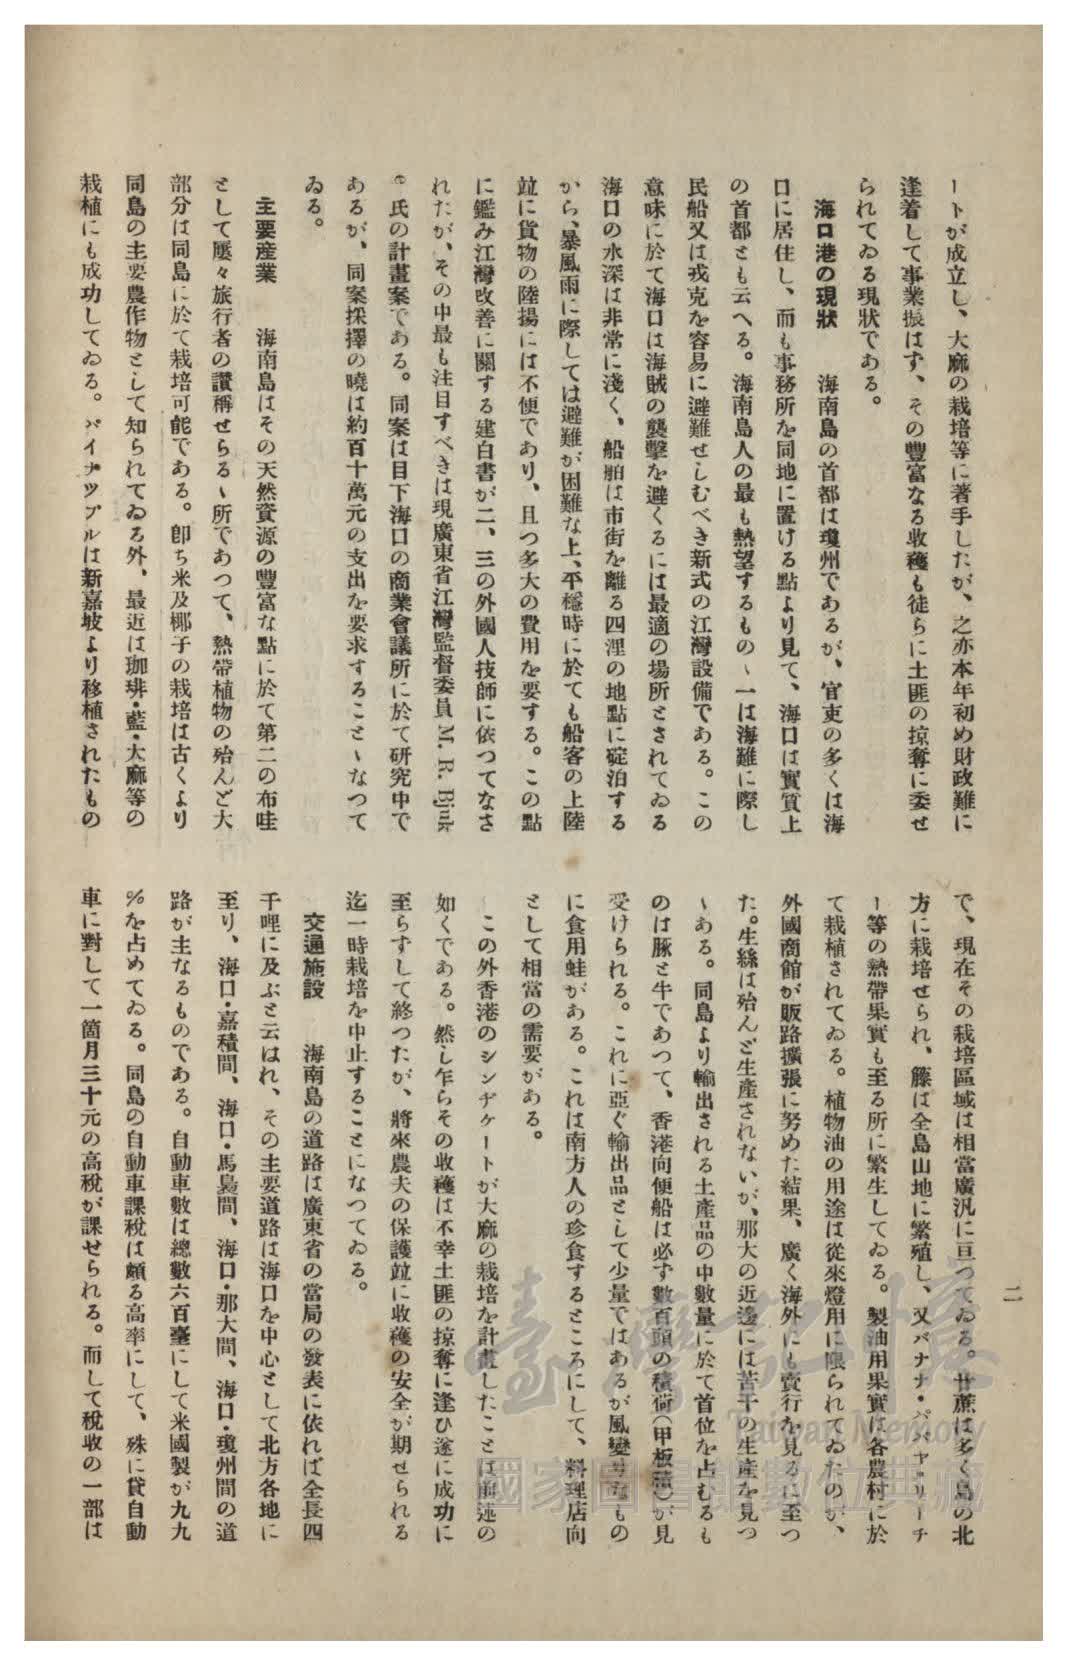 ートが成立し、大麻の栽培等に著手したが、之亦本年初め財政難に
逢着して事業振はず、その豐富なる收穫も徒らに土匪の掠奪に委せ
られてゐる現狀である。
海口港の現狀　海南島の首都は瓊州であるが、官吏の多くは海
口に居住し、而も事務所を同地に置ける點より見て、海口は實質上
の首都とも云へる。海南島人の最も熱望するものゝ一は海難に際し
民船又は戎克を容易に避難せしむべき新式の江灣設備である。この
意味に於て海口は海賊の襲擊を避くるには最適の場所とされてゐる
海口の水深は非常に淺く、船舶は市街を離る四浬の地點に碇泊する
から、暴風雨に際しては避難が困難な上、平穩時に於ても船客の上陸
竝に貨物の陸揚には不便であり、且つ多大の費用を要する。この點
に鑑み江灣改善に關する建白書が二、三の外國人技師に依つてなさ
れたが、その中最も注目すべきは現廣東省江灣監督委員 M. R. Bjuk
e 氏の計畫案である。同案は目下海口の商業會議所に於て研究中で
あるが、同案採擇の曉は約百十萬元の支出を要求することゝなつて
ゐる。
主要産業　海南島はその天然資源の豐富な點に於て第二の布哇
として屢々旅行者の讚稱せらるゝ所であつて、熱帶植物の殆んど大
部分は同島に於て栽培可能である。卽ち米及椰子の栽培は古くより
同島の主要農作物として知られてゐる外、最近は珈琲・藍・大麻等の
栽植にも成功してゐる。パイナツプルは新嘉坡より移植されたもの
で、現在その栽培區域は相當廣汎に亘つてゐる。甘蔗は多く島の北
方に栽培せられ、籐は全島山地に繁殖し、又バナナ・パパヤ・リーチ
ー等の熱帶果實も至る所に繁生してゐる。製油用果實は各農村に於
て栽植されてゐる。植物油の用途は從來燈用に限られてゐたのが、
外國商館が販路擴張に努めた結果、廣く海外にも賣行を見るに至つ
た。生絲は殆んど生産されないが、那大の近邊には若干の生産を見つ
ゝある。同島より輸出される土産品の中數量に於て首位を占むるも
のは豚と牛であつて、香港向便船は必ず數百頭の積荷(甲板積)が見
受けられる。これに亞ぐ輸出品として少量ではあるが風變りなもの
に食用蛙がある。これは南方人の珍食するところにして、料理店向
として相當の需要がある。
この外香港のシンヂケートが大麻の栽培を計畫したことは前述の
如くである。然し乍らその收穫は不幸土匪の掠奪に逢ひ遂に成功に
至らずして終つたが、將來農夫の保護竝に收穫の安全が期せられる
迄一時栽培を中止することになつてゐる。
交通施設　海南島の道路は廣東省の當局の發表に依れば全長四
千哩に及ぶと云はれ、その主要道路は海口を中心として北方各地に
至り、海口・嘉積間、海口・馬裊間、海口・那大間、海口・瓊州間の道
路が主なるものである。自動車數は總數六百臺にして米國製が九九
％を占めてゐる。同島の自動車課稅は頗る高率にして、殊に貸自動
車に對して一箇月三十元の高稅が課せられる。而して稅收の一部は
二
臺灣記憶
Taiwan Memory
國家圖書館數位典藏